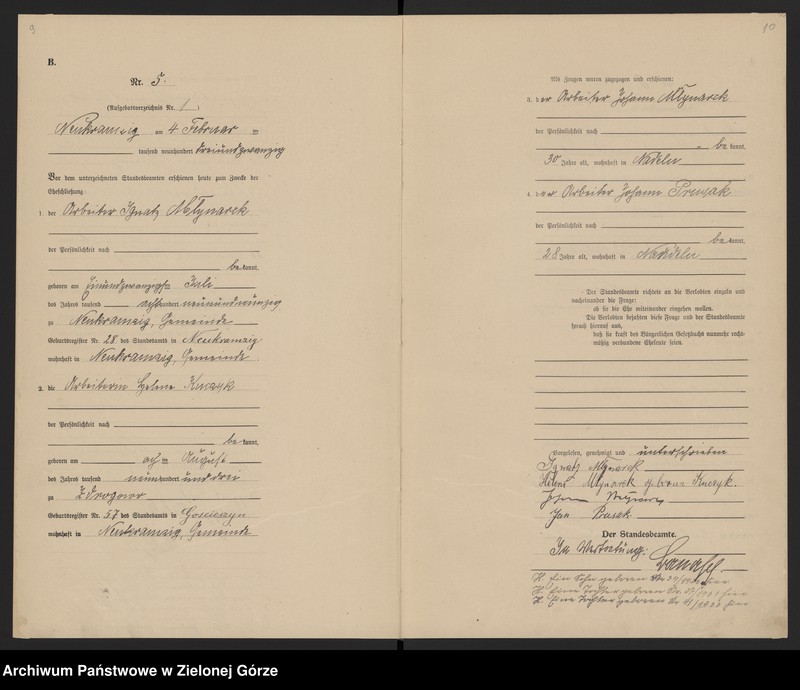 9
B.
Nr. 5.
(Aufgebotsverzeichnis Nr. 1)
Neukramzig am 4 Februar
tausend neunhundert dreiundzwanzig
Vor dem unterzeichneten Standesbeamten erschienen heute zum Zwecke der
Eheschließung:
1. der Arbeiter Ignatz Młynarek
der Persönlichkeit nach
be kannt,
geboren am einundzwanzigsten Juli
des Jahres tausend achthundert neunundneunzig
zu Neukramzig, Gemeinde
Geburtsregister Nr. 28 des Standesamts in Neukramzig
wohnhaft in Neukramzig, Gemeinde
2. die Arbeiterin Helene
der Persönlichkeit nach
be kannt,
geboren am August
des Jahres tausend neunhundert und drei
zu
Geburtsregister Nr. 57 des Standesamts in
wohnhaft in Neukramzig, Gemeinde
10
Als Zeugen waren zugezogen und erschienen:
3. der Arbeiter Johann Młynarek
der Persönlichkeit nach
be kannt,
30 Jahre alt, wohnhaft in Nädeln
4. der Arbeiter Johann
der Persönlichkeit nach
be kannt,
28 Jahre alt, wohnhaft in
Der Standesbeamte richtete an die Verlobten einzeln und
nacheinander die Frage:
ob sie die Ehe miteinander eingehen wollen.
Die Verlobten bejahten diese Frage und der Standesbeamte
sprach hierauf aus,
daß sie kraft des Bürgerlichen Gesetzbuchs nunmehr recht-
mäßig verbundene Eheleute seien.
Vorgelesen, genehmigt und unterschrieben
Ignatz Młynarek
Helene Młynarek geborene
Jan
Der Standesbeamte.
In Vertretung:
Ein Sohn geboren Nr.
Eine Tochter geboren Nr.
Eine Tochter geboren Nr.
Archiwum Państwowe w Zielonej Górze